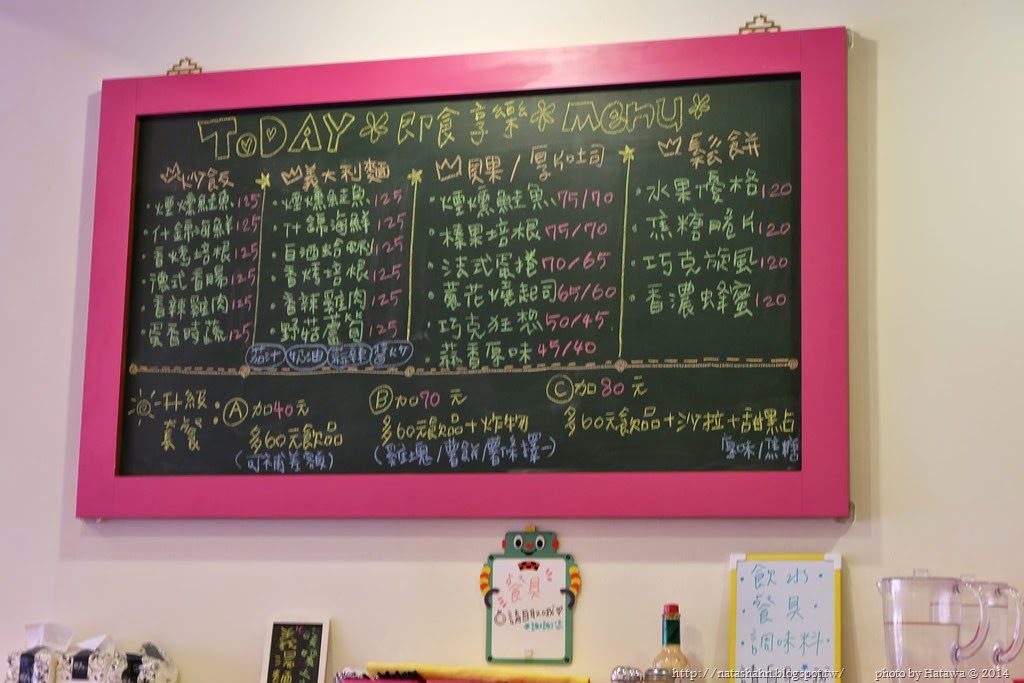 TODAY 即食享樂 menu
炒飯
煙燻鮭魚 125
什錦海鮮 125
香烤培根 125
德式香腸 125
香辣雞肉 125
蛋香時蔬 125
義大利麵
煙燻鮭魚 125
什錦海鮮 125
白酒蛤蜊 125
香烤培根 125
香辣雞肉 125
野菇蘆筍 125
茄汁 奶油 蒜辣 醬炒
貝果/厚片吐司
煙燻鮭魚 75/70
榛果培根 75/70
法式蛋捲 70/65
薯花燒起司 65/60
巧克狂想 50/45
蒜香原味 45/40
鬆餅
水果優格 120
焦糖脆片 120
巧克旋風 120
香濃蜂蜜 120
升級套餐:
A 加40元
多60元飲品
(可補差額)
B 加70元
多60元飲品+炸物
(雞塊/薯餅/薯條擇一)
C 加80元
多60元飲品+沙拉+甜點
原味/焦糖
餐具
請自取哦
謝謝
飲水
餐具
調味料
http://natashahh.blogspot.tw/ photo by Hatawa © 2014